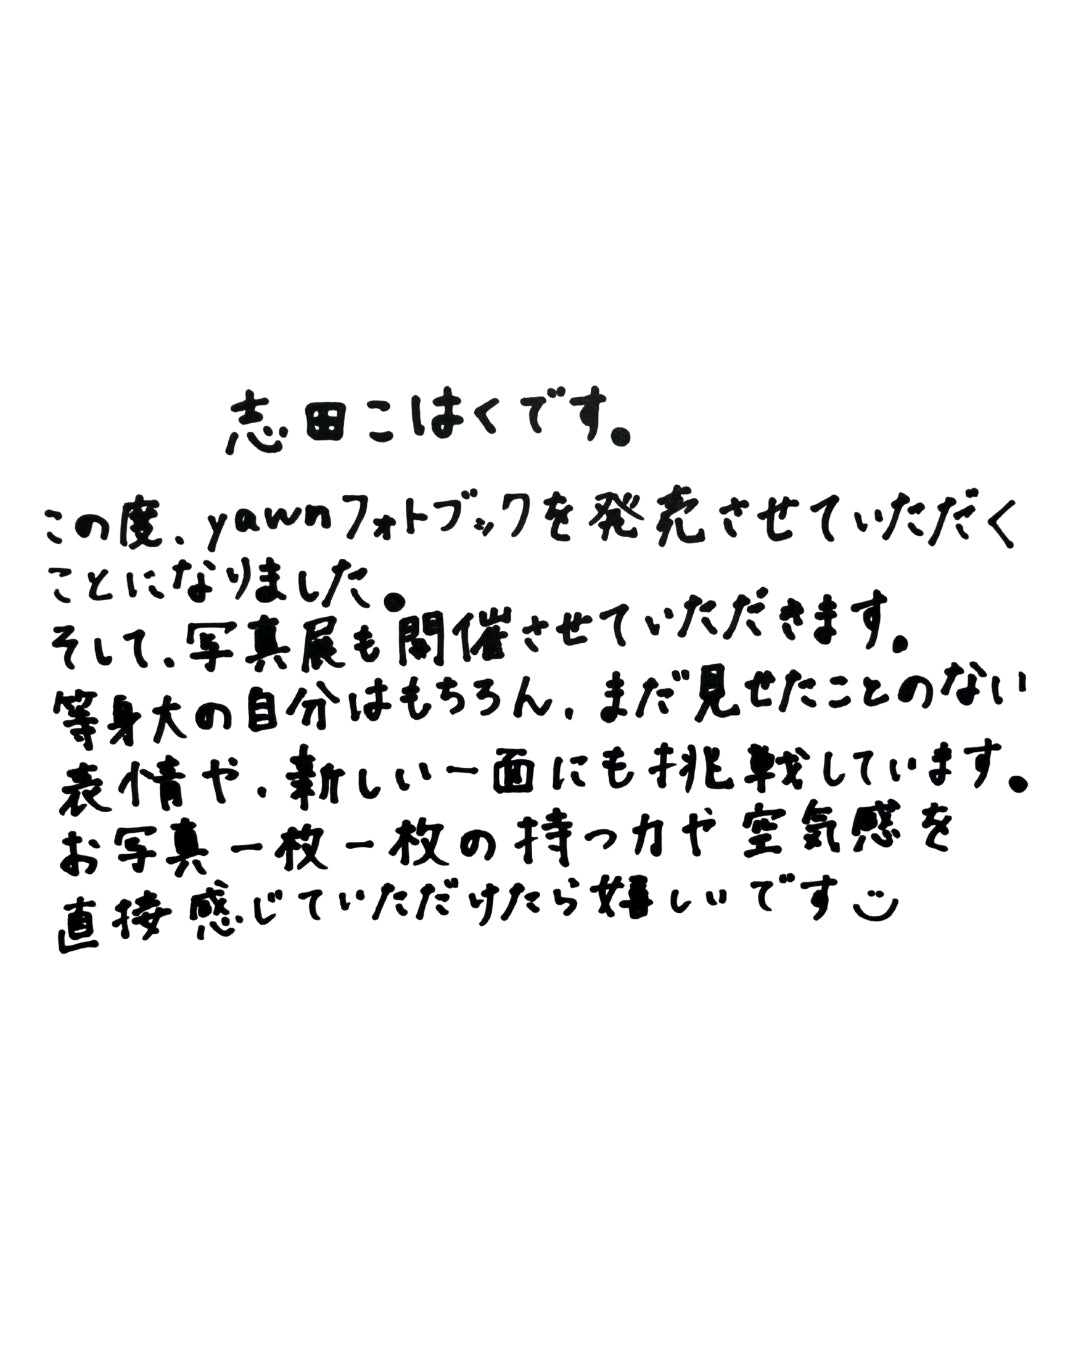 志田こはくです。
この度、yawnフォトブックを発売させていただく
ことになりました。
そして、写真展も開催させていただきます。
等身大の自分はもちろん、まだ見せたことのない
表情や、新しい一面にも挑戦しています。
お写真一枚一枚の持つ力や空気感を
直接感じていただけたら嬉しいです